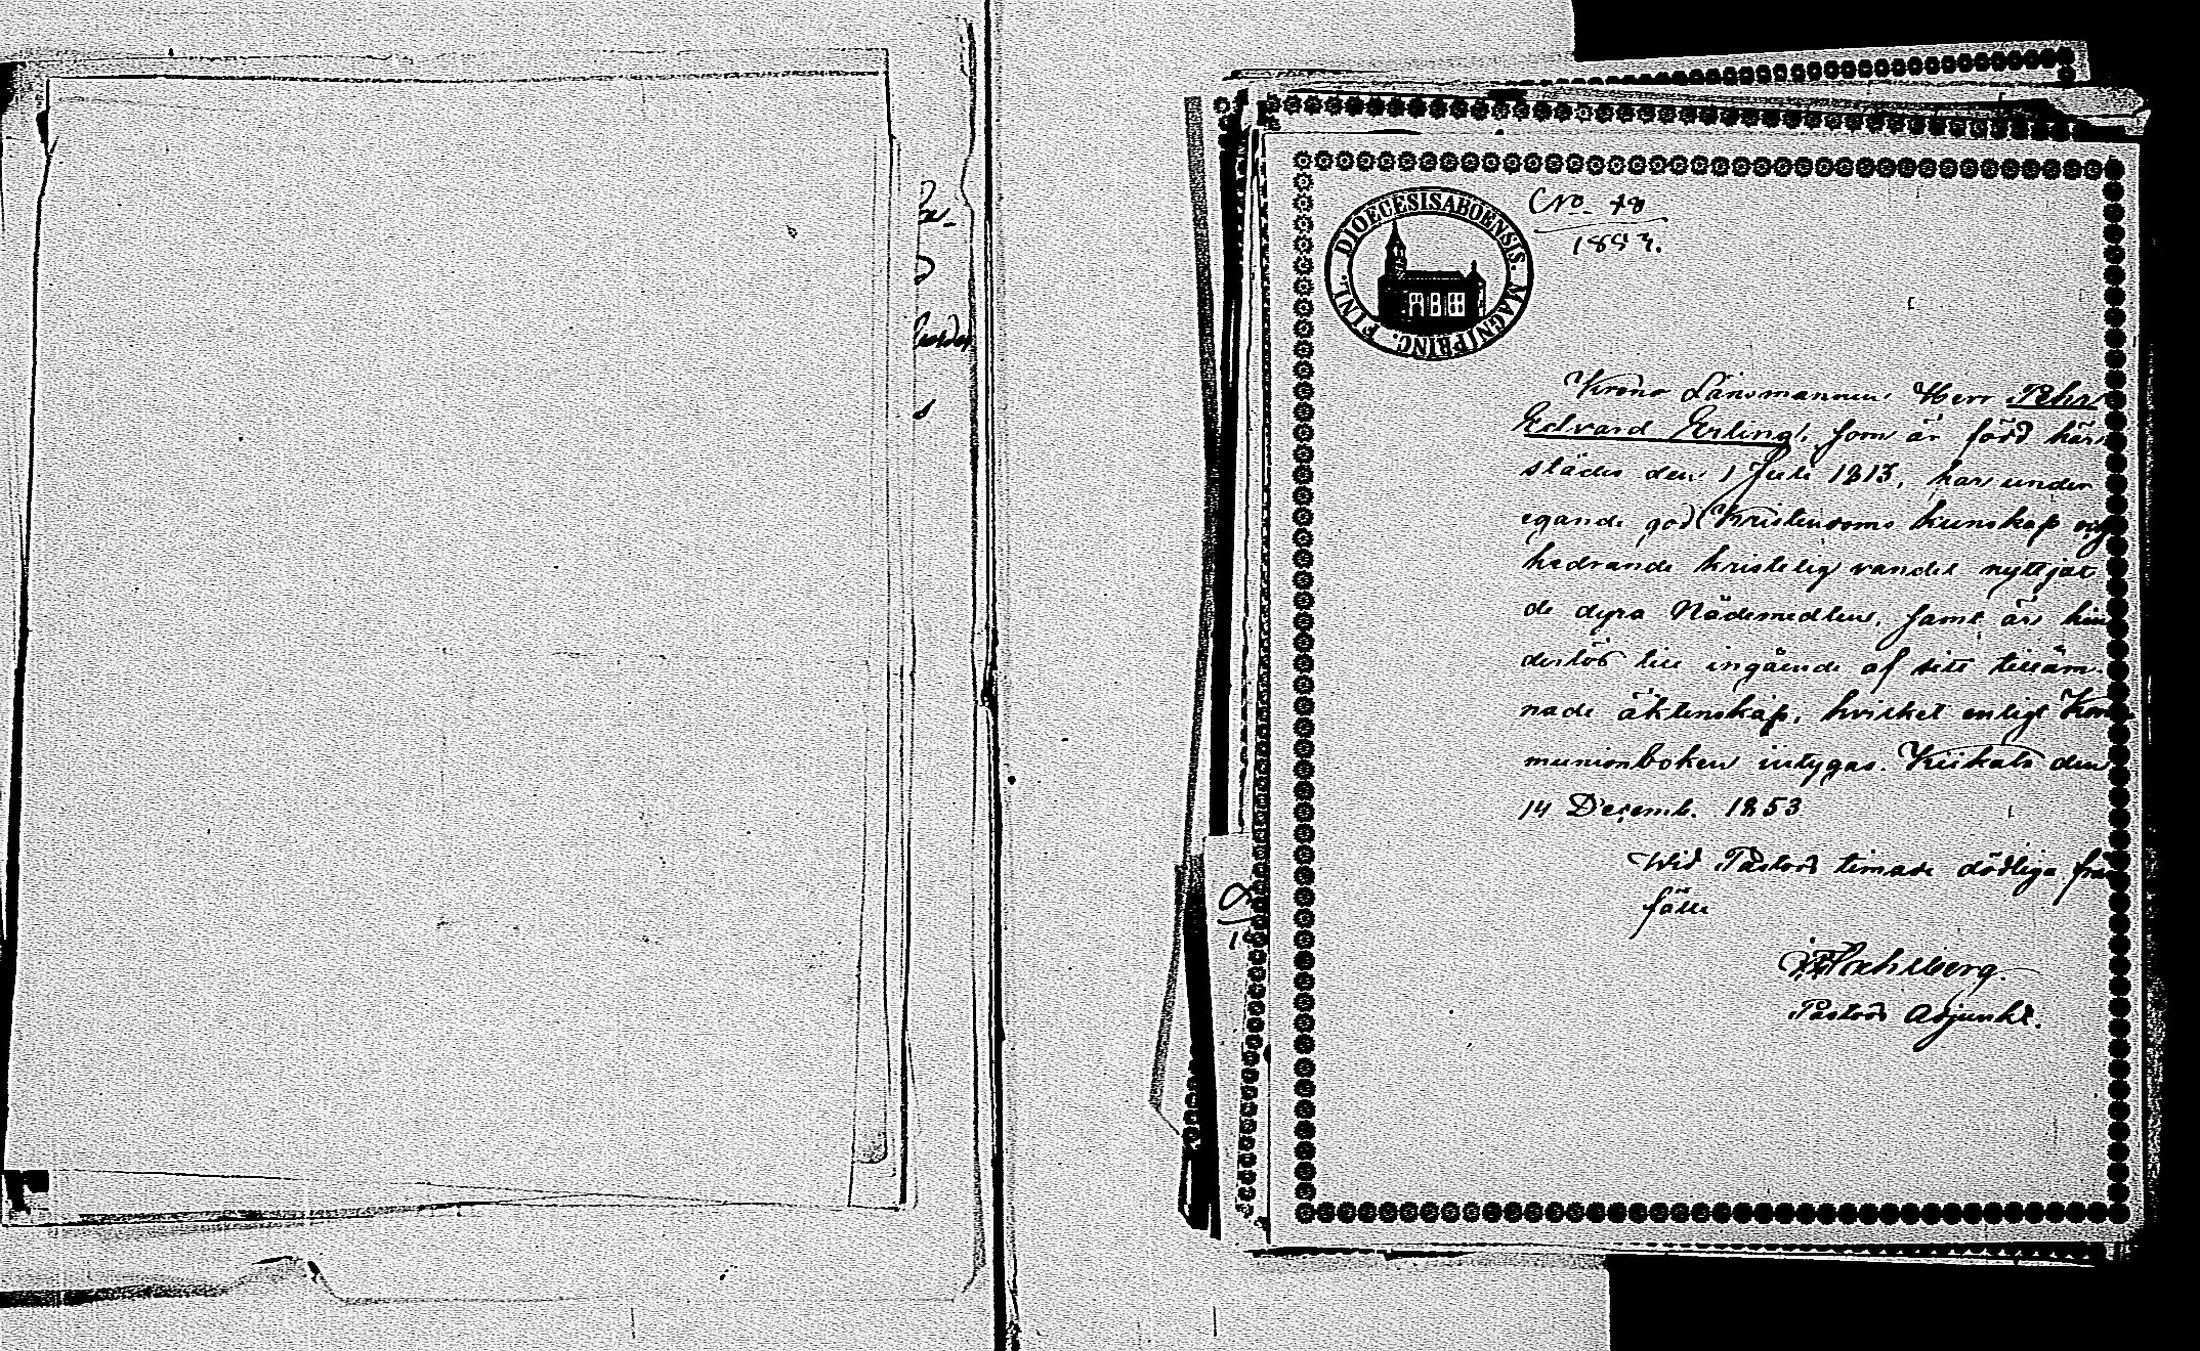 DIOECESIS ABOENSIS. MAGNI PRINC. FINL.
No. 48
1853.
Krono Länsmannen Herr Pehr
Edvard Erling, som är född här
städes den 1 Juli 1813, har under
egande god Kristendoms kunskap och
hedrande kristelig vandel nyttjat
de dyra Nådemedlen, samt är hin
derlös till ingående af sitt tilläm
nade äktenskap, hvilket enligt Kom
munionboken intygas. Kiikala den
14 Decemb. 1853
Wid Pastors timade dödliga från
fälle
Pastors Adjunkt.